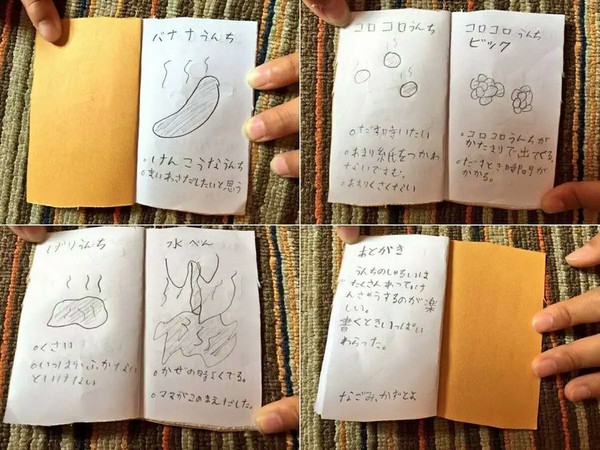 バナナうんち
○けんこうなうんち
○まいあさだしたいと思う
コロコロうんち
○だすとき
○あまり紙をつかわ
ないですむ。
○あまりくさくない
コロコロうんち
ビック
○コロコロうんちが
かたまりで出てくる。
○だすとき時間が
かかる。
げりうんち
○くさい
○いっぱいふかない
といけない
水べん
○かぜの時でてる。
○ママがこのまえだした。
あとがき
うんちのしゅるいは
たくさんあってけ
んきゅうするのが楽
しい。
書くときいっぱい
わらった。
なごみ、かずとよ